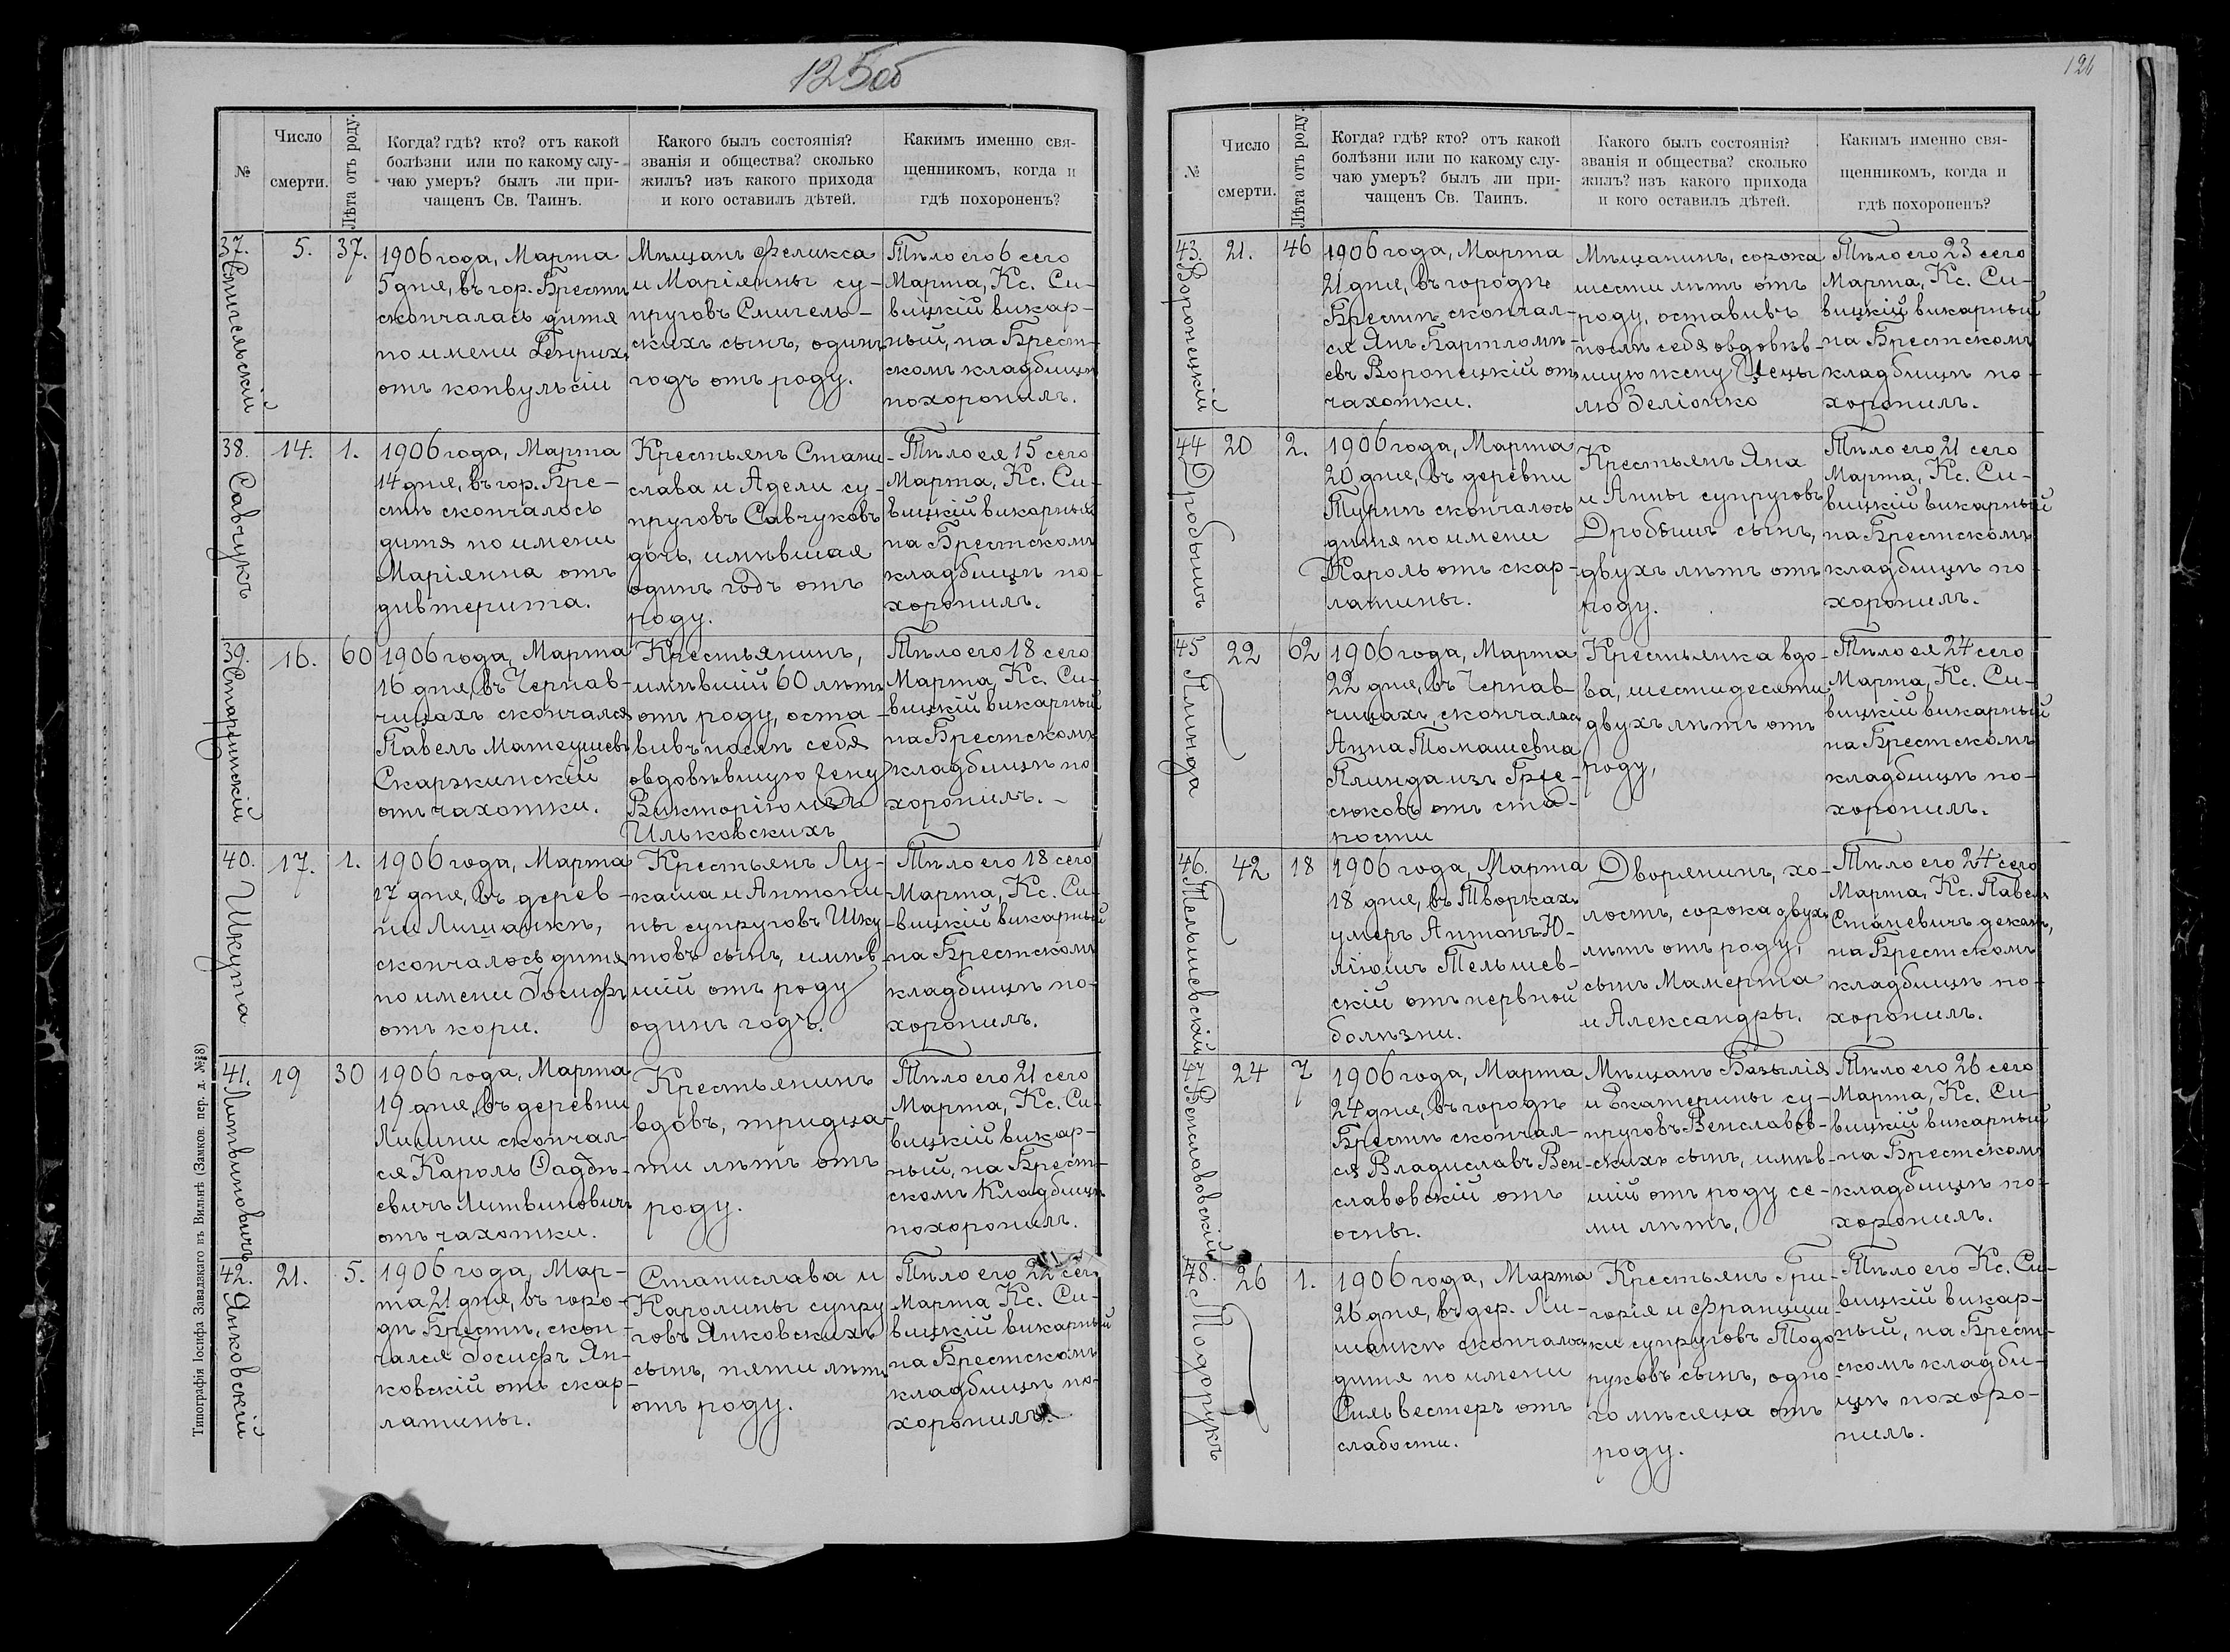 125об
№
Число
смерти.
Лѣта отъ роду.
Когда? гдѣ? кто? отъ какой
болѣзни или по какому слу-
чаю умеръ? былъ ли при-
чащенъ Св. Таинъ.
Какого былъ состоянія?
званія и общества? сколько
жилъ? изъ какого прихода
и кого оставилъ дѣтей.
Какимъ именно свя-
щенникомъ, когда и
гдѣ похороненъ?
37.
Смигельскій
5.
37.
1906 года, Марта
5 дня, въ гор. Брестѣ
скончалась дитя
по имени Генрихъ
отъ конвульсіи
Мѣщанъ Феликса
и Маріянны су-
пруговъ Смигель-
скихъ сынъ, одинъ
годъ отъ роду.
Тѣло его 6 сего
Марта, Кс. Си-
вицкій викар-
ный, на Брест-
скомъ кладбищѣ
похоронилъ.
38.
Савчукъ
14.
1.
1906 года, Марта
14 дня, въ гор. Бре-
стѣ скончалось
дитя по имени
Маріянна отъ
дивтерита.
Крестьянъ Стани-
слава и Адели су-
пруговъ Савчуковъ
дочь, имѣвшая
одинъ годъ отъ
роду.
Тѣло ея 15 сего
Марта, Кс. Си-
вицкій викарный
на Брестскомъ
кладбищѣ по-
хоронилъ.
39.
16.
60
1906 года, Марта
16 дня, въ Чернав-
чицахъ скончался
Павелъ Матеушевъ
Скаржинскій
отъ чахотки.
Крестьянинъ,
имѣвшій 60 лѣтъ
отъ роду, оста-
вивъ послѣ себя
овдовѣвшую жену
Викторію изъ
Ильковскихъ
Тѣло его 18 сего
Марта, Кс. Си-
вицкій викарный
на Брестскомъ
кладбищѣ по
хоронилъ. -
40.
Шкута
17.
1.
1906 года, Марта
17 дня, въ дерев-
ни Лищанкѣ,
скончалось дитя
по имени Іосифъ
отъ кори.
Крестьянъ Лу-
каша и Антони-
ны супруговъ Шку
товъ сынъ, имѣв
шій отъ роду
одинъ годъ.
Тѣло его 18 сего
Марта, Кс. Си-
вицкій викарный
на Брестскомъ
кладбищѣ по-
хоронилъ.
41.
Литвиновичъ
19
30
1906 года, Марта
19 дня, въ деревни
скончал-
ся Кароль Фадѣ-
евичъ Литвиновичъ
отъ чахотки.
Крестьянинъ
вдовъ, тридца-
ти лѣтъ отъ
роду.
Тѣло его 21 сего
Марта, Кс. Си-
вицкій викар-
ный, на Брест-
скомъ Кладбищѣ
похоронилъ.
42.
Янковскій
21.
5.
1906 года, Мар-
та 21 дня, въ горо-
дѣ Брестѣ, скон-
чался Іосифъ Ян-
ковскій отъ скар-
латины.
Станислава и
Каролины супру
говъ Янковскихъ
сынъ, пяти лѣтъ
отъ роду.
Тѣло его 22 сего
Марта Кс. Си-
вицкій викарный
на Брестскомъ
кладбищѣ по-
хоронилъ.
Типографія Іосифа Завадзкаго въ Вильнѣ (Замков. пер. д. № 8)
126
№
Число
смерти.
Лѣта отъ роду.
Когда? гдѣ? кто? отъ какой
болѣзни или по какому слу-
чаю умеръ? былъ ли при-
чащенъ Св. Таинъ.
Какого былъ состоянія?
званія и общества? сколько
жилъ? изъ какого прихода
и кого оставилъ дѣтей.
Какимъ именно свя-
щенникомъ, когда и
гдѣ похороненъ?
43.
Воронецкій
21.
46
1906 года, Марта
21 дня, въ городѣ
Брестѣ скончал-
ся Янъ Бартломѣ-
евъ Воронецкій отъ
чахотки.
Мѣщанинъ, сорока
шести лѣтъ отъ
роду, оставивъ
послѣ себя овдовѣв-
шую жену Цецы
лю Зеліонко
Тѣло его 23 сего
Марта, Кс. Си-
вицкій викарный
на Брестскомъ
кладбищѣ по-
хоронилъ.
44
Дробышъ
20
2.
1906 года, Марта
20 дня, въ деревни
Турнѣ скончалось
дитя по имени
Кароль отъ скар-
латины.
Крестьянъ Яна
и Анны супруговъ
Дробышъ сынъ,
двухъ лѣтъ отъ
роду.
Тѣло его 21 сего
Марта, Кс. Си-
вицкій викарный
на Брестскомъ
кладбищѣ по-
хоронилъ.
45
Плинда
22
62
1906 года, Марта
22 дня, въ Чернав-
чицахъ, скончалась
Анна Томашевна
Плинда изъ
сюковъ отъ ста-
рости
Крестьянка вдо-
ва, шестидесяти
двухъ лѣтъ отъ
роду,
Тѣло ея 24 сего
Марта, Кс. Си-
вицкій викарный
на Брестскомъ
кладбищѣ по-
хоронилъ.
46.
Тельшевскій
42
18
1906 года, Марта
18 дня, въ Творкахъ
умеръ Антонъ Ю-
ліюшъ Тельшев-
скій отъ нервной
болѣзни.
Дворянинъ, хо-
лостъ, сорока двухъ
лѣтъ отъ роду,
сынъ Мамерта
и Александры.
Тѣло его 24 сего
Марта, Кс. Павелъ
Станевичъ деканъ,
на Брестскомъ
кладбищѣ по-
хоронилъ.
47
Венславовскій
24
7
1906 года, Марта
24 дня, въ городѣ
Брестѣ скончал-
ся Владиславъ Вен-
славовскій отъ
оспы.
Мѣщанъ Базылія
и Екатерины су-
пруговъ Венславов-
скихъ сынъ, имѣв-
шій отъ роду се-
ми лѣтъ,
Тѣло его 26 сего
Марта, Кс. Си-
вицкій викарный
на Брестскомъ
кладбищѣ по-
хоронилъ.
48.
Тодорукъ
26
1.
1906 года, Марта
26 дня, въ дер. Ли-
щанкѣ скончалось
дитя по имени
Сильвестеръ отъ
слабости.
Крестьянъ Гри-
горія и Францишки
ки супруговъ Тодо
руковъ сынъ, одно-
го мѣсяца отъ
роду.
Тѣло его Кс. Си-
вицкій викар-
ный, на Брест-
скомъ кладби-
щѣ похоро-
нилъ.